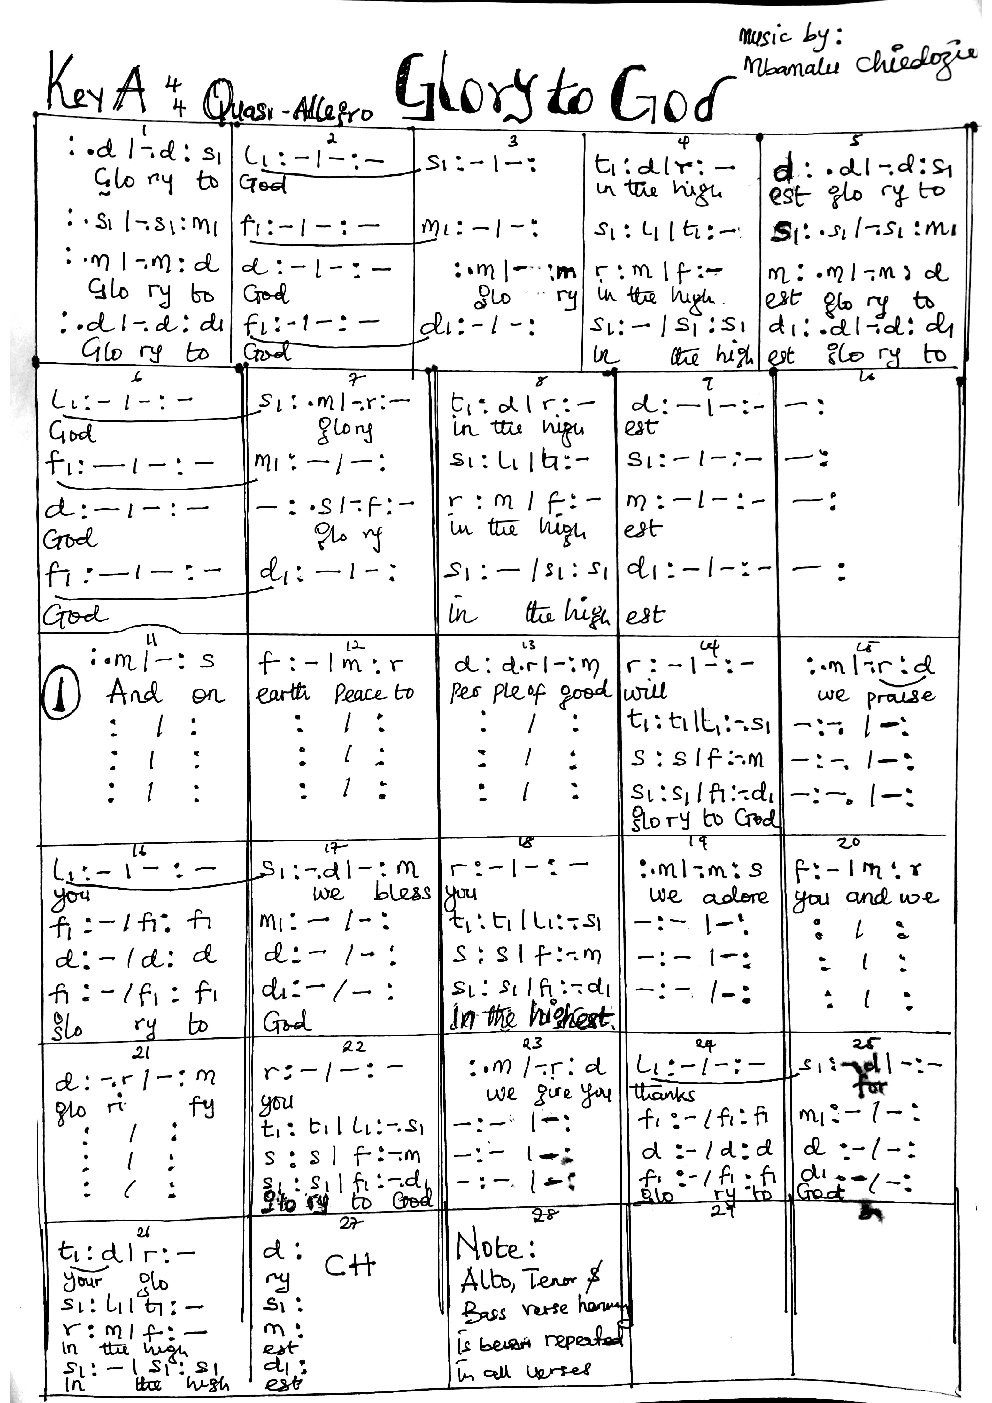 music by:
Mbanalu Chiedozie
Key A 4/4 Quasi-Allegro Glory to God
1 2 3 4 5
:.d|-.d:s₁ l₁:-|-:- s₁:-|-: t₁:d|r:- d:.d|-.d:s₁
Glo ry to God in the high est glo ry to
:.s₁|-.s₁:m₁ f₁:-|-:- m₁:-|-: s₁:l₁|t₁:- s₁:.s₁|-.s₁:m₁
:.m|-.m:d d:-|-:- :.m|-:m r:m|f:- m:.m|-.m:d
Glo ry to God glo ry in the high est glo ry to
:.d|-.d:d₁ f₁:-|-:- d₁:-|-: s₁:-|s₁:s₁ d₁:.d|-.d:d₁
Glo ry to God in the high est glo ry to
6 7 8 9 10
l₁:-|-:- s₁:.m|-.r:- t₁:d|r:- d:-|-:- -:
God glory in the high est
f₁:-|-:- m₁:-|-: s₁:l₁|t₁:- s₁:-|-:- -:
d:-|-:- -:.s|-.f:- r:m|f:- m:-|-:- -:
God glo ry in the high est
f₁:-|-:- d₁:-|-: s₁:-|s₁:s₁ d₁:-|-:- -:
God in the high est
11 12 13 14 15
1 :.m|-:s f:-|m:r d:d.r|-:m r:-|-:- :.m|-.r:d
And on earth Peace to Peo ple of good will we praise
: | : : | : : | : t₁:t₁|l₁:-.s₁ -:-.|-:
: | : : | : : | : s:s|f:-.m -:-.|-:
: | : : | : : | : s₁:s₁|f₁:-.d₁ -:-.|-:
glo ry to God
16 17 18 19 20
l₁:-|-:- s₁:-.d|-:m r:-|-:- :.m|-.m:s f:-|m:r
you we bless you we adore you and we
f₁:-|f₁:f₁ m₁:-|-: t₁:t₁|l₁:-.s₁ -:-|-: : | :
d:-|d:d d:-|-: s:s|f:-.m -:-|-: : | :
f₁:-|f₁:f₁ d₁:-|-: s₁:s₁|f₁:-.d₁ -:-|-: : | :
glo ry to God In the highest.
21 22 23 24 25
d:-.r|-:m r:-|-:- :.m|-.r:d l₁:-|-:- s₁:-.d|-:-
glo ri fy you we give you thanks for
: | : t₁:t₁|l₁:-.s₁ -:-|-: f₁:-|f₁:f₁ m₁:-|-:
: | : s:s|f:-.m -:-|-: d:-|d:d d:-|-:
: | : s₁:s₁|f₁:-.d₁ -:-|-: f₁:-|f₁:f₁ d₁:-|-:
Glo ry to God glo ry to God
26 27 28 29
t₁:d|r:- d: CH Note:
your glo ry Alto, Tenor &
s₁:l₁|t₁:- s₁: Bass verse harmony
r:m|f:- m: is been repeated
in the high est in all verses
s₁:-|s₁:s₁ d₁:
in the high est